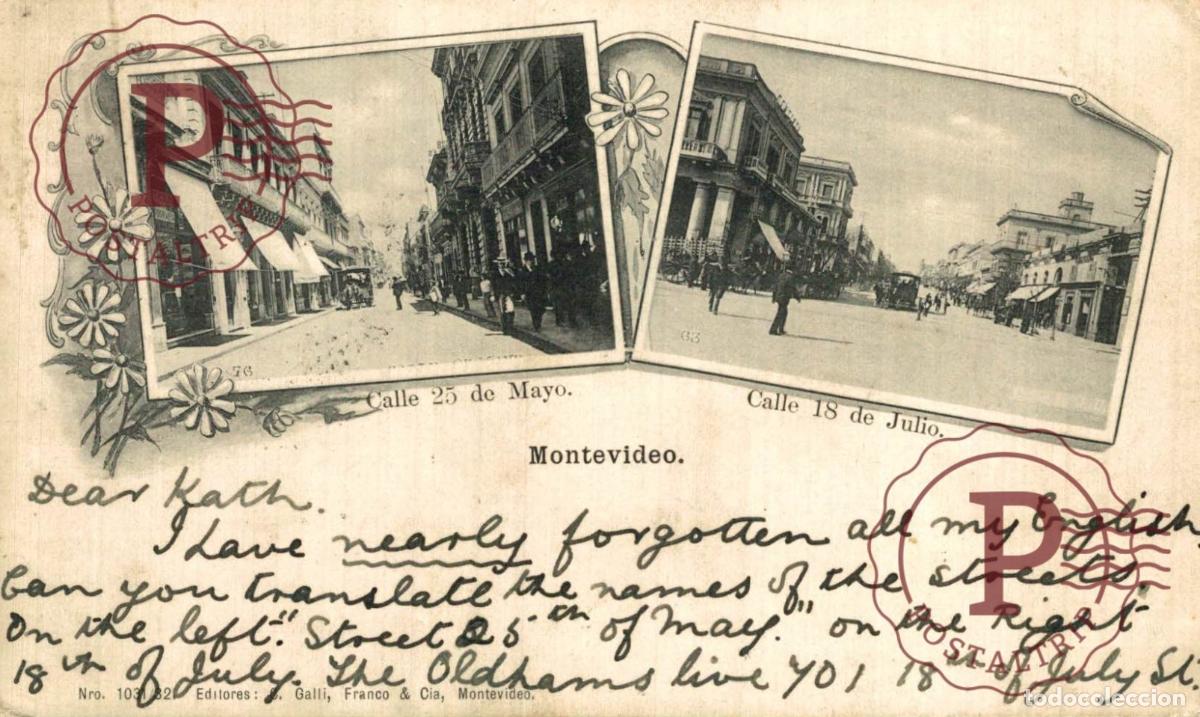 P
POSTALTRI
76
Calle 25 de Mayo.
63
Calle 18 de Julio.
Montevideo.
Dear Kath.
I have nearly forgotten all my English.
Can you translate the names of the streets.
On the left. "Street 25th of May." on the Right
18th of July. The Oldhams live 701 18th of July St.
Nro. 1031/32 Editores: C. Galli, Franco & Cia, Montevideo.
P
POSTALTRI
todocoleccion